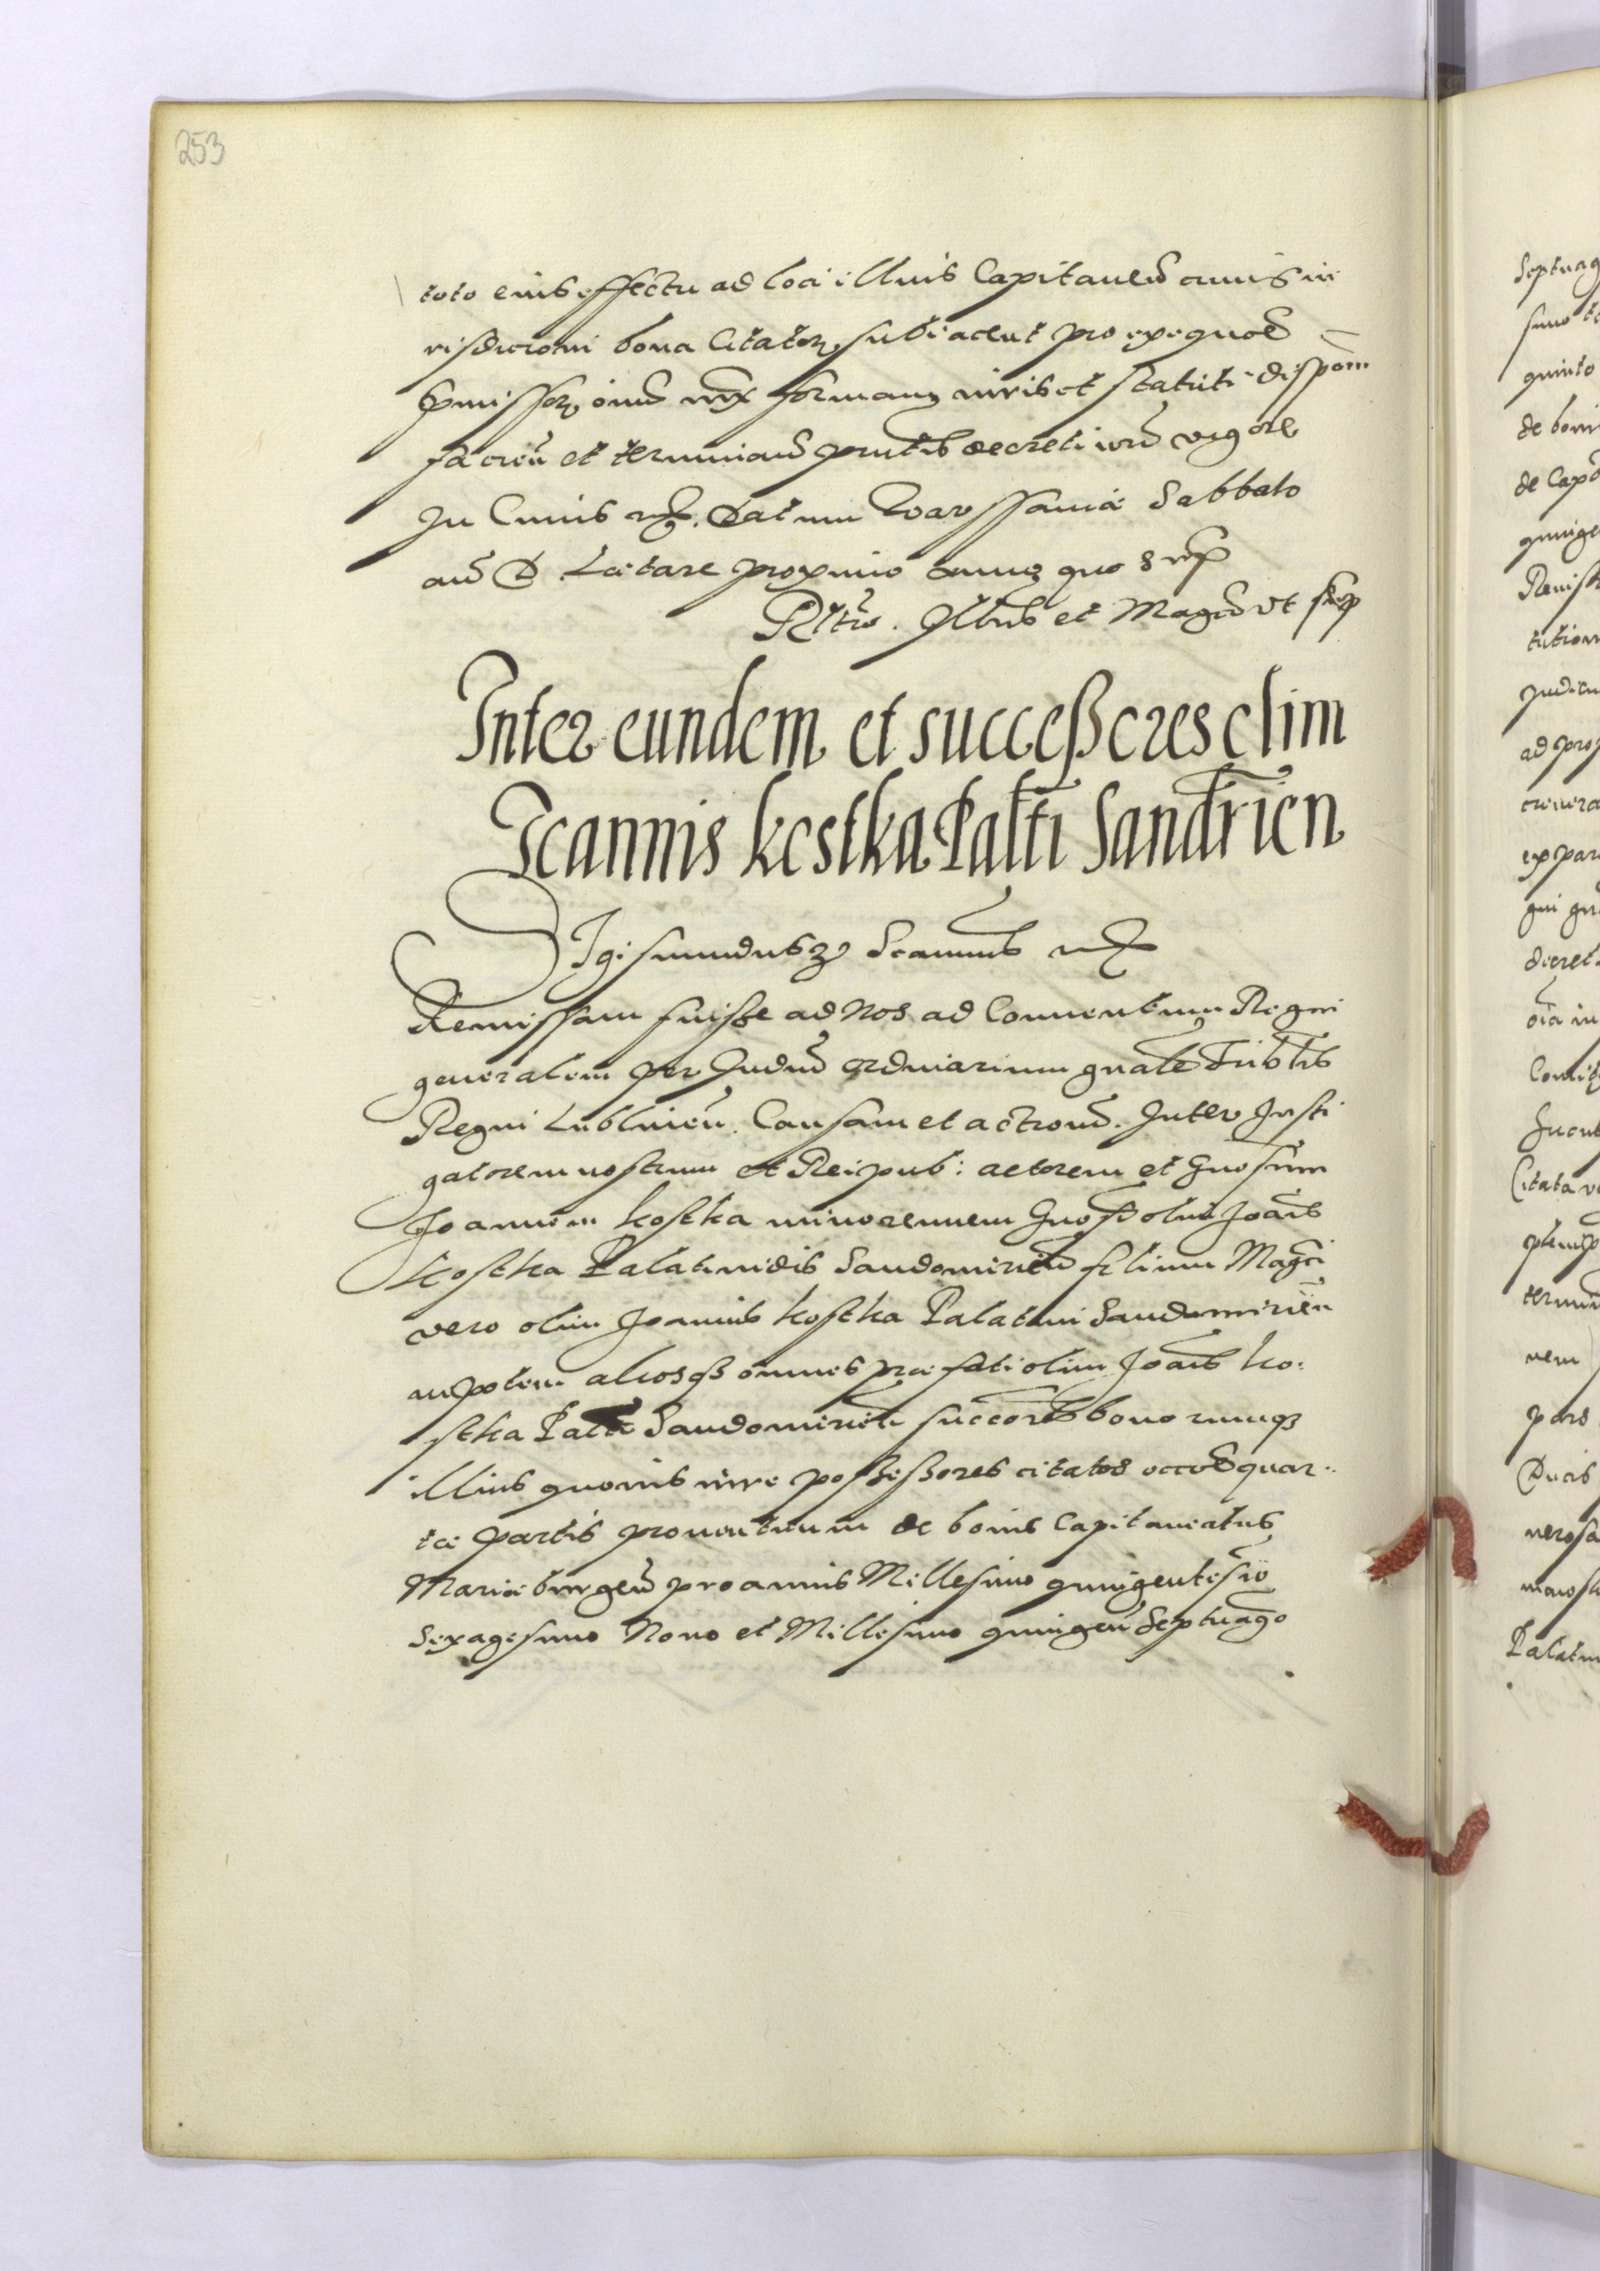 253
toto eius effectu ad loci illius Capitaneū cuius iu
risdictioni bona Citator subiacent pro exequōe
pmissor oniū iux formam iuris et statuti dispōm
faciēn et terminand pntis decreti nrī vigore
In Cuius rei. Datum Warssaviæ Sabbato
an D Lætare proximo anno quo s
Rltio. Illūs et Magcī vt sup
Inter eundem et succeßores olim
Joannis kostka Paltti Sandrien
Sigismundus 3 Scimus
Remissam fuisse ad Nos ad Conventum Regni
generalem per Judm ordinarium gnale Tribtlis
Regni Lublinen. Causam et actionē. Inter Insti
gatorem nostrum et Reipub: actorem et Gnosum
Joannem kostka minorennem Gnosi olim Joaīs
kostka Palatinidis Sandomirien filium Magci
vero olim Joannis kostka Palatini Sandomiriēn
nepotem aliosqʒ omnes præfati olim Joaīs ko:
stka Palti Sandomirien succores bonorumqʒ
illius quovis iure poßeßores citatos occōe quar:
tæ partis proventuum de bonis Capitaneatus
Mariæburgen pro annis Millesimo quingentesio
Sexagesimo Nono et Millesimo quingen Septuago
Septuag
quinto
de boni
de Cap
quinge
Remiss
tution
Judici
ad pro
ex par
qui
decret
oia in
Comit
Citata
termi
nem
pars
Ducis
nerosa
Palatin